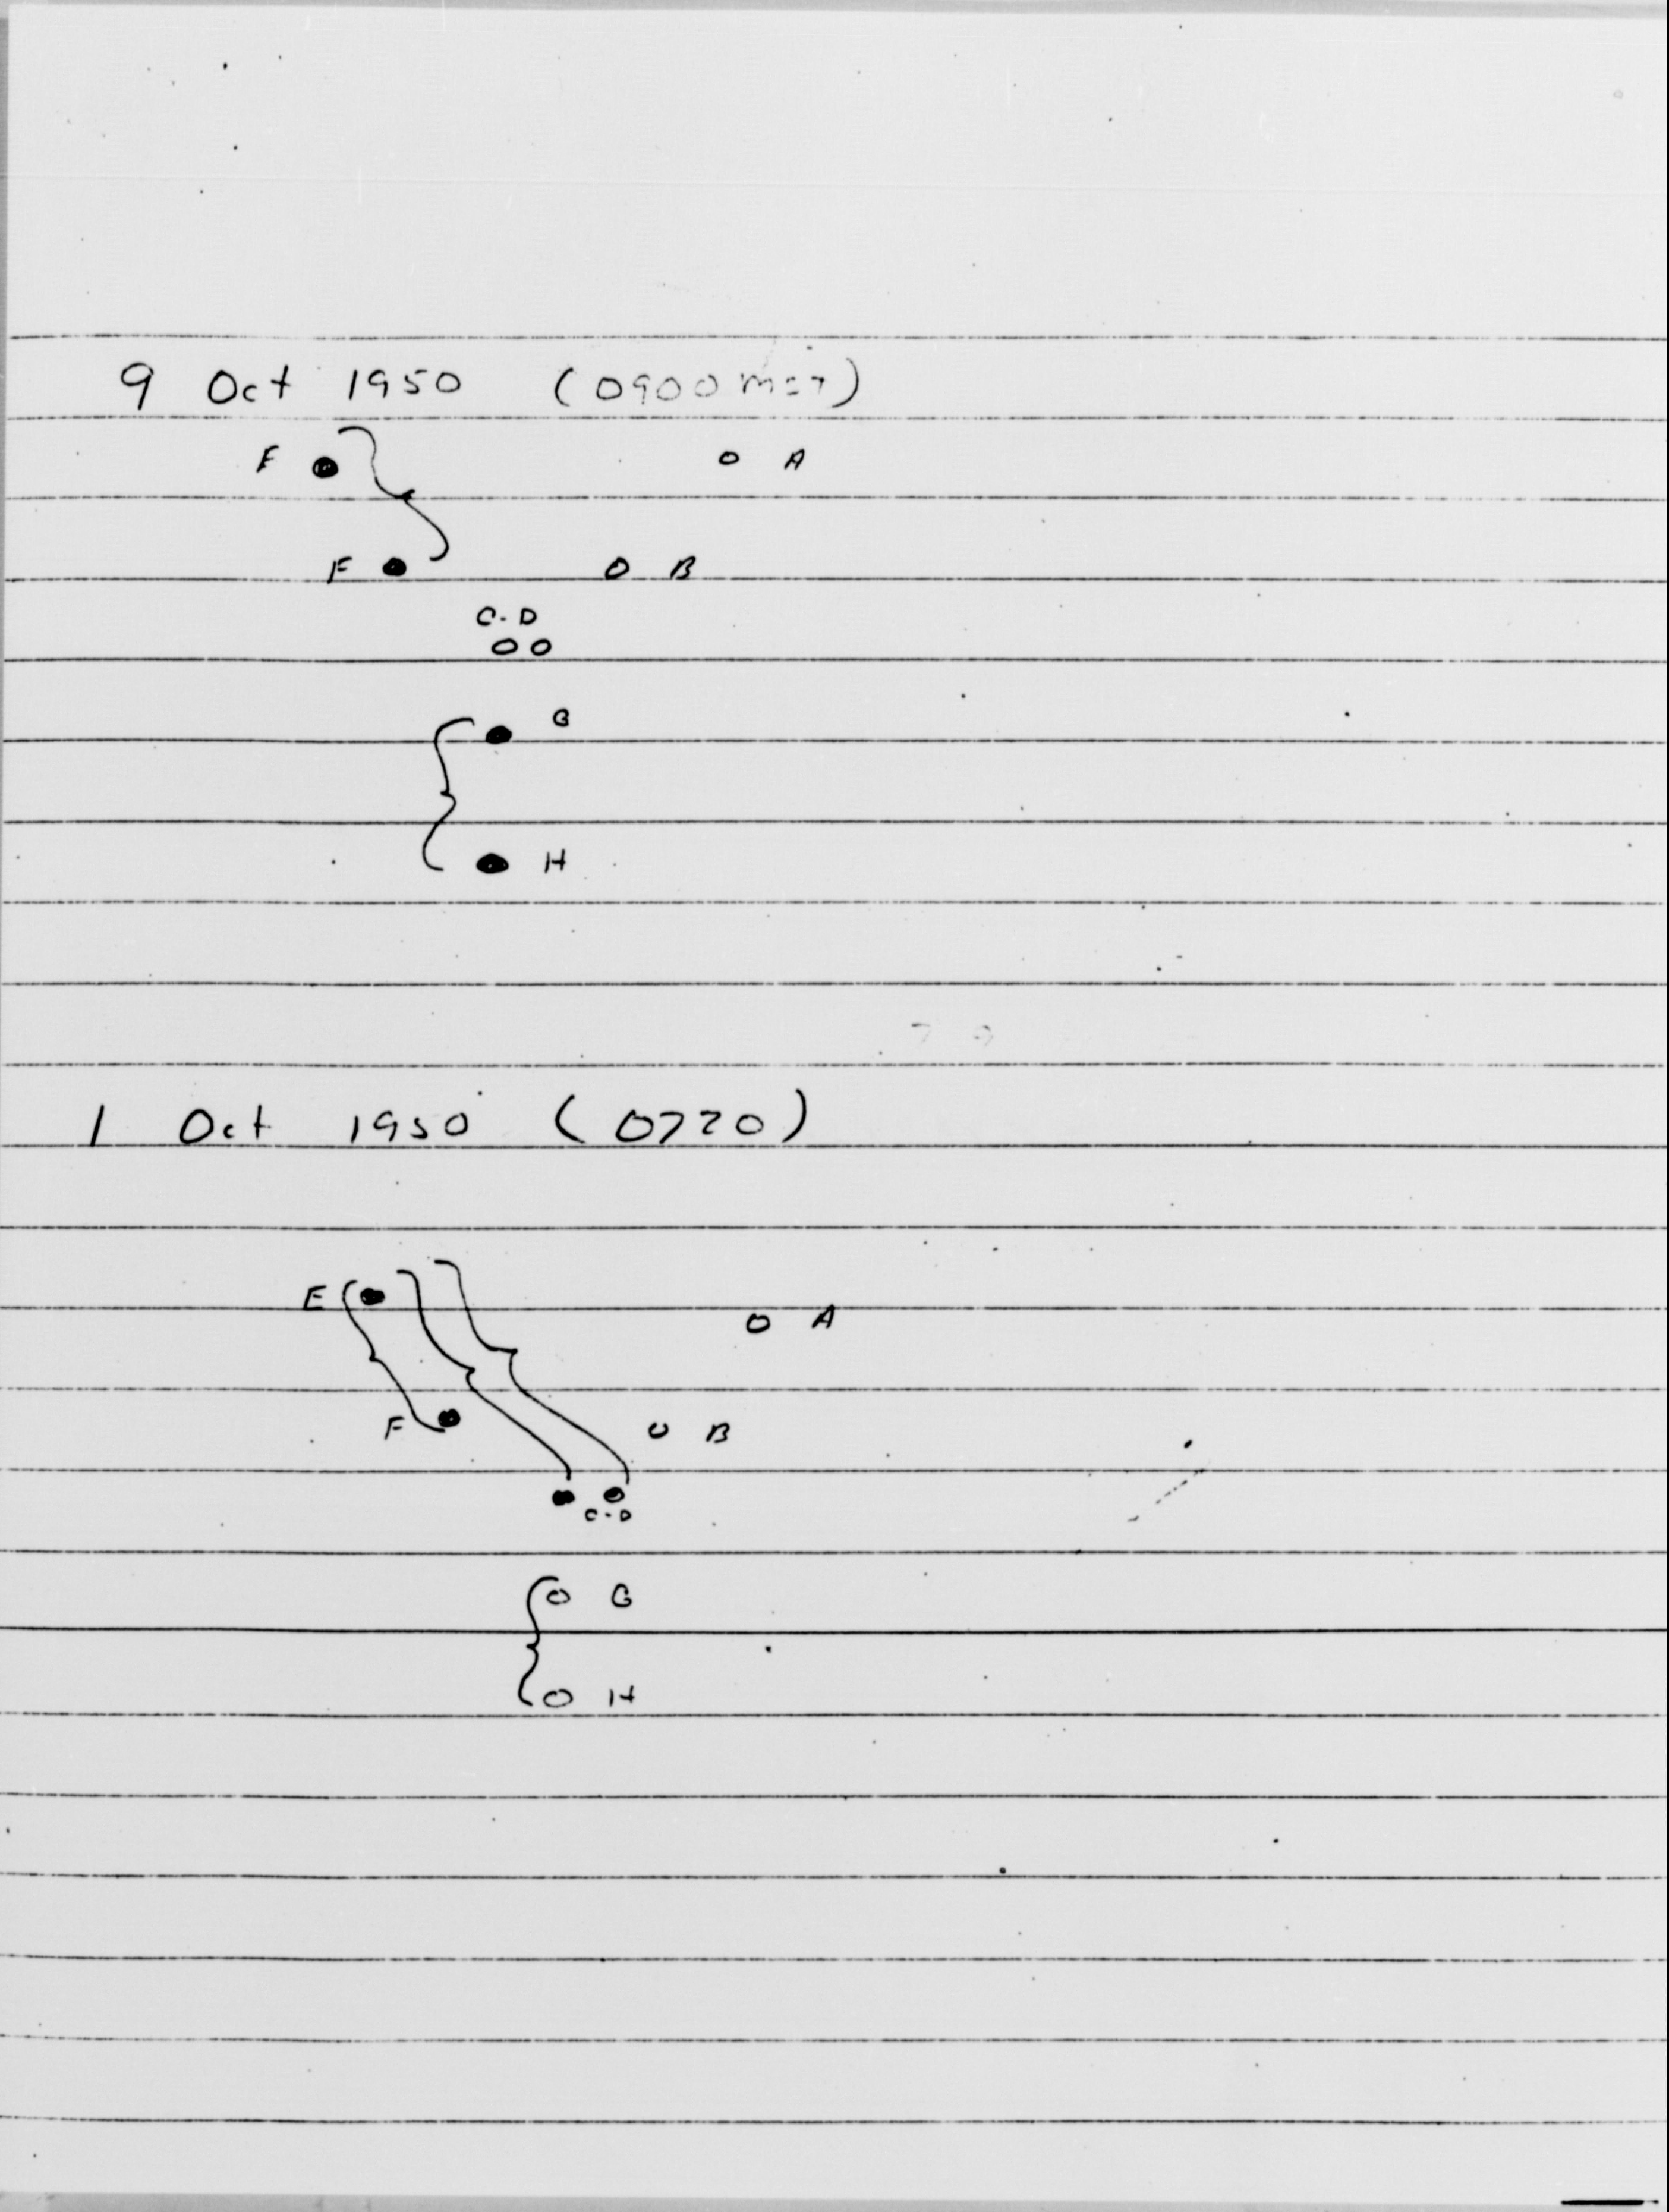 9 Oct 1950 (0900 MST)
F A
F B
C-D
G
H
1 Oct 1950 (0720)
E A
F B
C-D
G
H